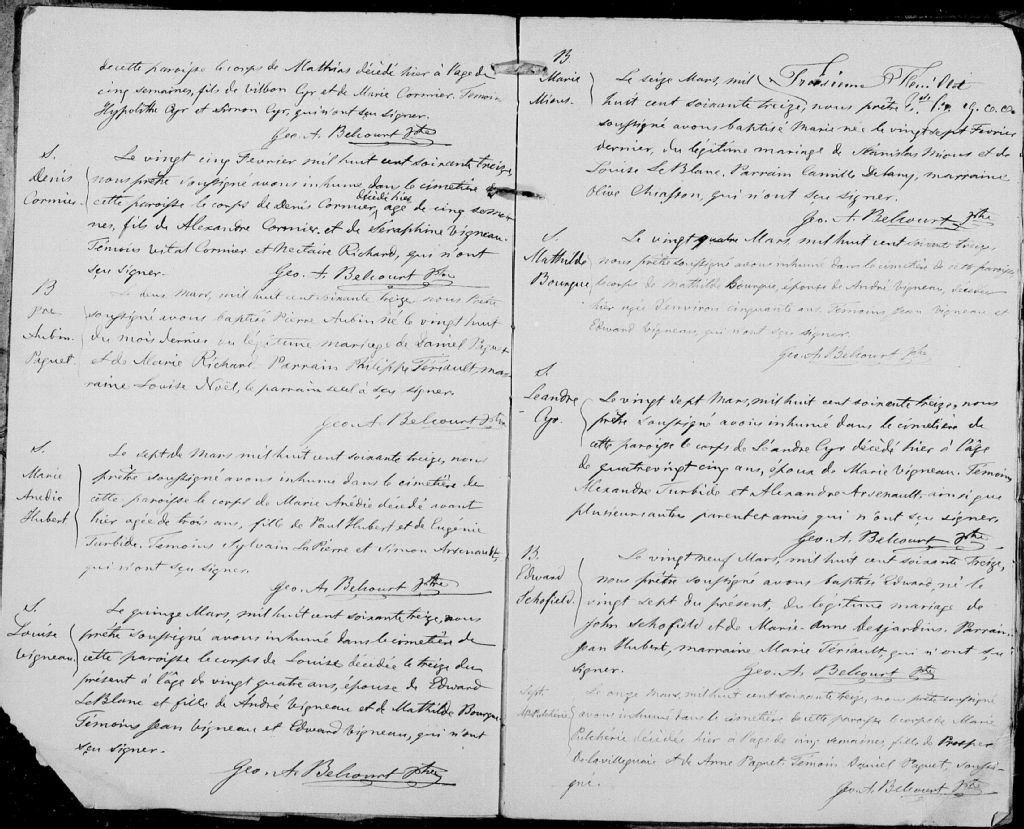 de cette paroisse le corps de Mathias décédé hier à l'age de
cinq semaines, fils de Vilbon Cyr et de Marie Cormier. Temoins
Hyppolithe Cyr et Simon Cyr, qui n'ont su signer.
Geo. A. Belcourt Ptre
S.
Denis
Cormier.
Le vingt cinq Fevrier mil huit cent soixante treize,
nous prêtre soussigné avons inhumé dans le cimetière de
cette paroisse le corps de Denis Cormier, décédé hier age de cinq semai-
nes, fils de Alexandre Cormier et de Séraphine Vigneau.
Temoins Vital Cormier et Nectaire Richard, qui n'ont
sçu signer.
Geo. A. Belcourt Ptre
B
Pre
Aubin
Paquet.
Le deux Mars, mil huit cent soixante treize nous Prêtre
soussigné avons baptisé Pierre Aubin né le vingt huit
du mois dernier du légitime mariage de Daniel Paquet
et de Marie Richard Parrain Philippe Teriault, mar-
raine Louise Noël, le parrain seul a sçu signer.
Geo. A. Belcourt Ptre
S.
Marie
Anédie
Hubert
Le sept de Mars mil huit cent soixante treize, nous
prêtre soussigné avons inhumé dans le cimetière de
cette paroisse le corps de Marie Anédie décédé avant
hier agée de trois ans, fille de Paul Hubert et de Eugénie
Turbide. Temoins Sylvain LaPierre et Simon Arsenault,
qui n'ont sçu signer.
Geo. A. Belcourt Ptre
S.
Louise
Vigneau.
Le quinze Mars, mil huit cent soixante treize, nous
prêtre soussigné avons inhumé dans le cimetière de
cette paroisse le corps de Louise décédée le treize du
présent à l'âge de vingt quatre ans, épouse de Edward
LeBlanc et fille de André Vigneau et de Mathilde Bourque
Temoins Jean Vigneau et Edward Vigneau, qui n'ont
sçu signer.
Geo. A. Belcourt Ptre
B.
Marie
Mious.
Troisieme Feuillet
Le seize Mars, mil
huit cent soixante treize, nous prêtre
soussigné avons baptisé Marie née le vingt sept Fevrier
dernier, du légitime mariage de Stanislas Mious et de
Louise LeBlanc. Parrain Camille Delany, marraine
Olive Chiasson, qui n'ont sçu signer.
Geo. A. Belcourt Ptre
S.
Mathilde
Bourque
Le vingt quatre Mars, mil huit cent soixante treize,
nous prêtre soussigné avons inhumé dans le cimetière de cette paroisse
le corps de Mathilde Bourque, épouse de André Vigneau, décédée
hier agée d'environ cinquante ans. Temoins Jean Vigneau et
Edward Vigneau, qui n'ont sçu signer.
Geo. A. Belcourt Ptre
S
Leandre
Cyr.
Le vingt sept Mars, mil huit cent soixante treize, nous
prêtre soussigné avons inhumé dans le cimetière de
cette paroisse le corps de Léandre Cyr décédé hier à l'âge
de quatrevingt cinq ans, époux de Marie Vigneau. Témoins
Alexandre Turbide et Alexandre Arsenault, ainsi que
plusieurs autres parents et amis qui n'ont sçu signer.
Geo. A. Belcourt Ptre
B.
Edward
Schofield.
Le vingt neuf Mars, mil huit cent soixante Treize,
nous prêtre soussigné avons baptisé Edward, né le
vingt sept du présent, du légitime mariage de
John Schofield et de Marie-Anne Desjardins. Parrain
Jean Hubert, marraine Marie Teriault, qui n'ont sçu
signer.
Geo. A. Belcourt Ptre
Sept.
M. Pulchérie
Le onze Mars, mil huit cent soixante treize, nous prêtre soussigné
avons inhumé dans le cimetière de cette paroisse le corps de Marie
Pulchérie décédée hier à l'age de cinq semaines, fille de Prosper
Delavillequaie et de Anne Paquet. Temoin Daniel Paquet, soussi-
gné.
Geo. A. Belcourt Ptre